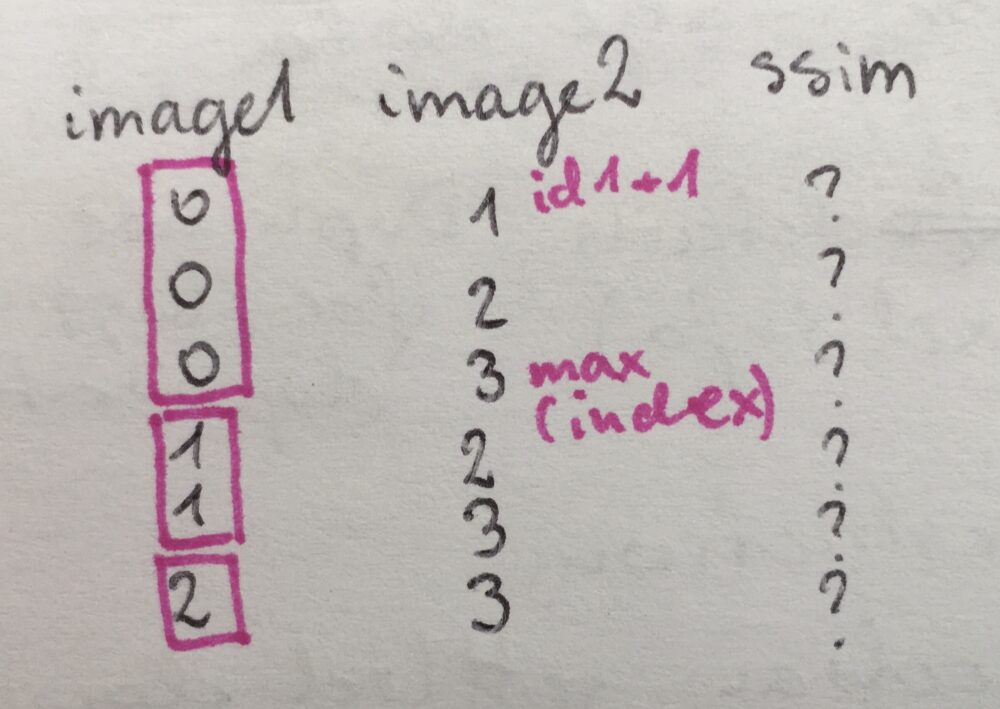 image1 image2 ssim
0 1 id1+1 ?
0 2 ?
0 3 max ?
(index)
1 2 ?
1 3 ?
2 3 ?